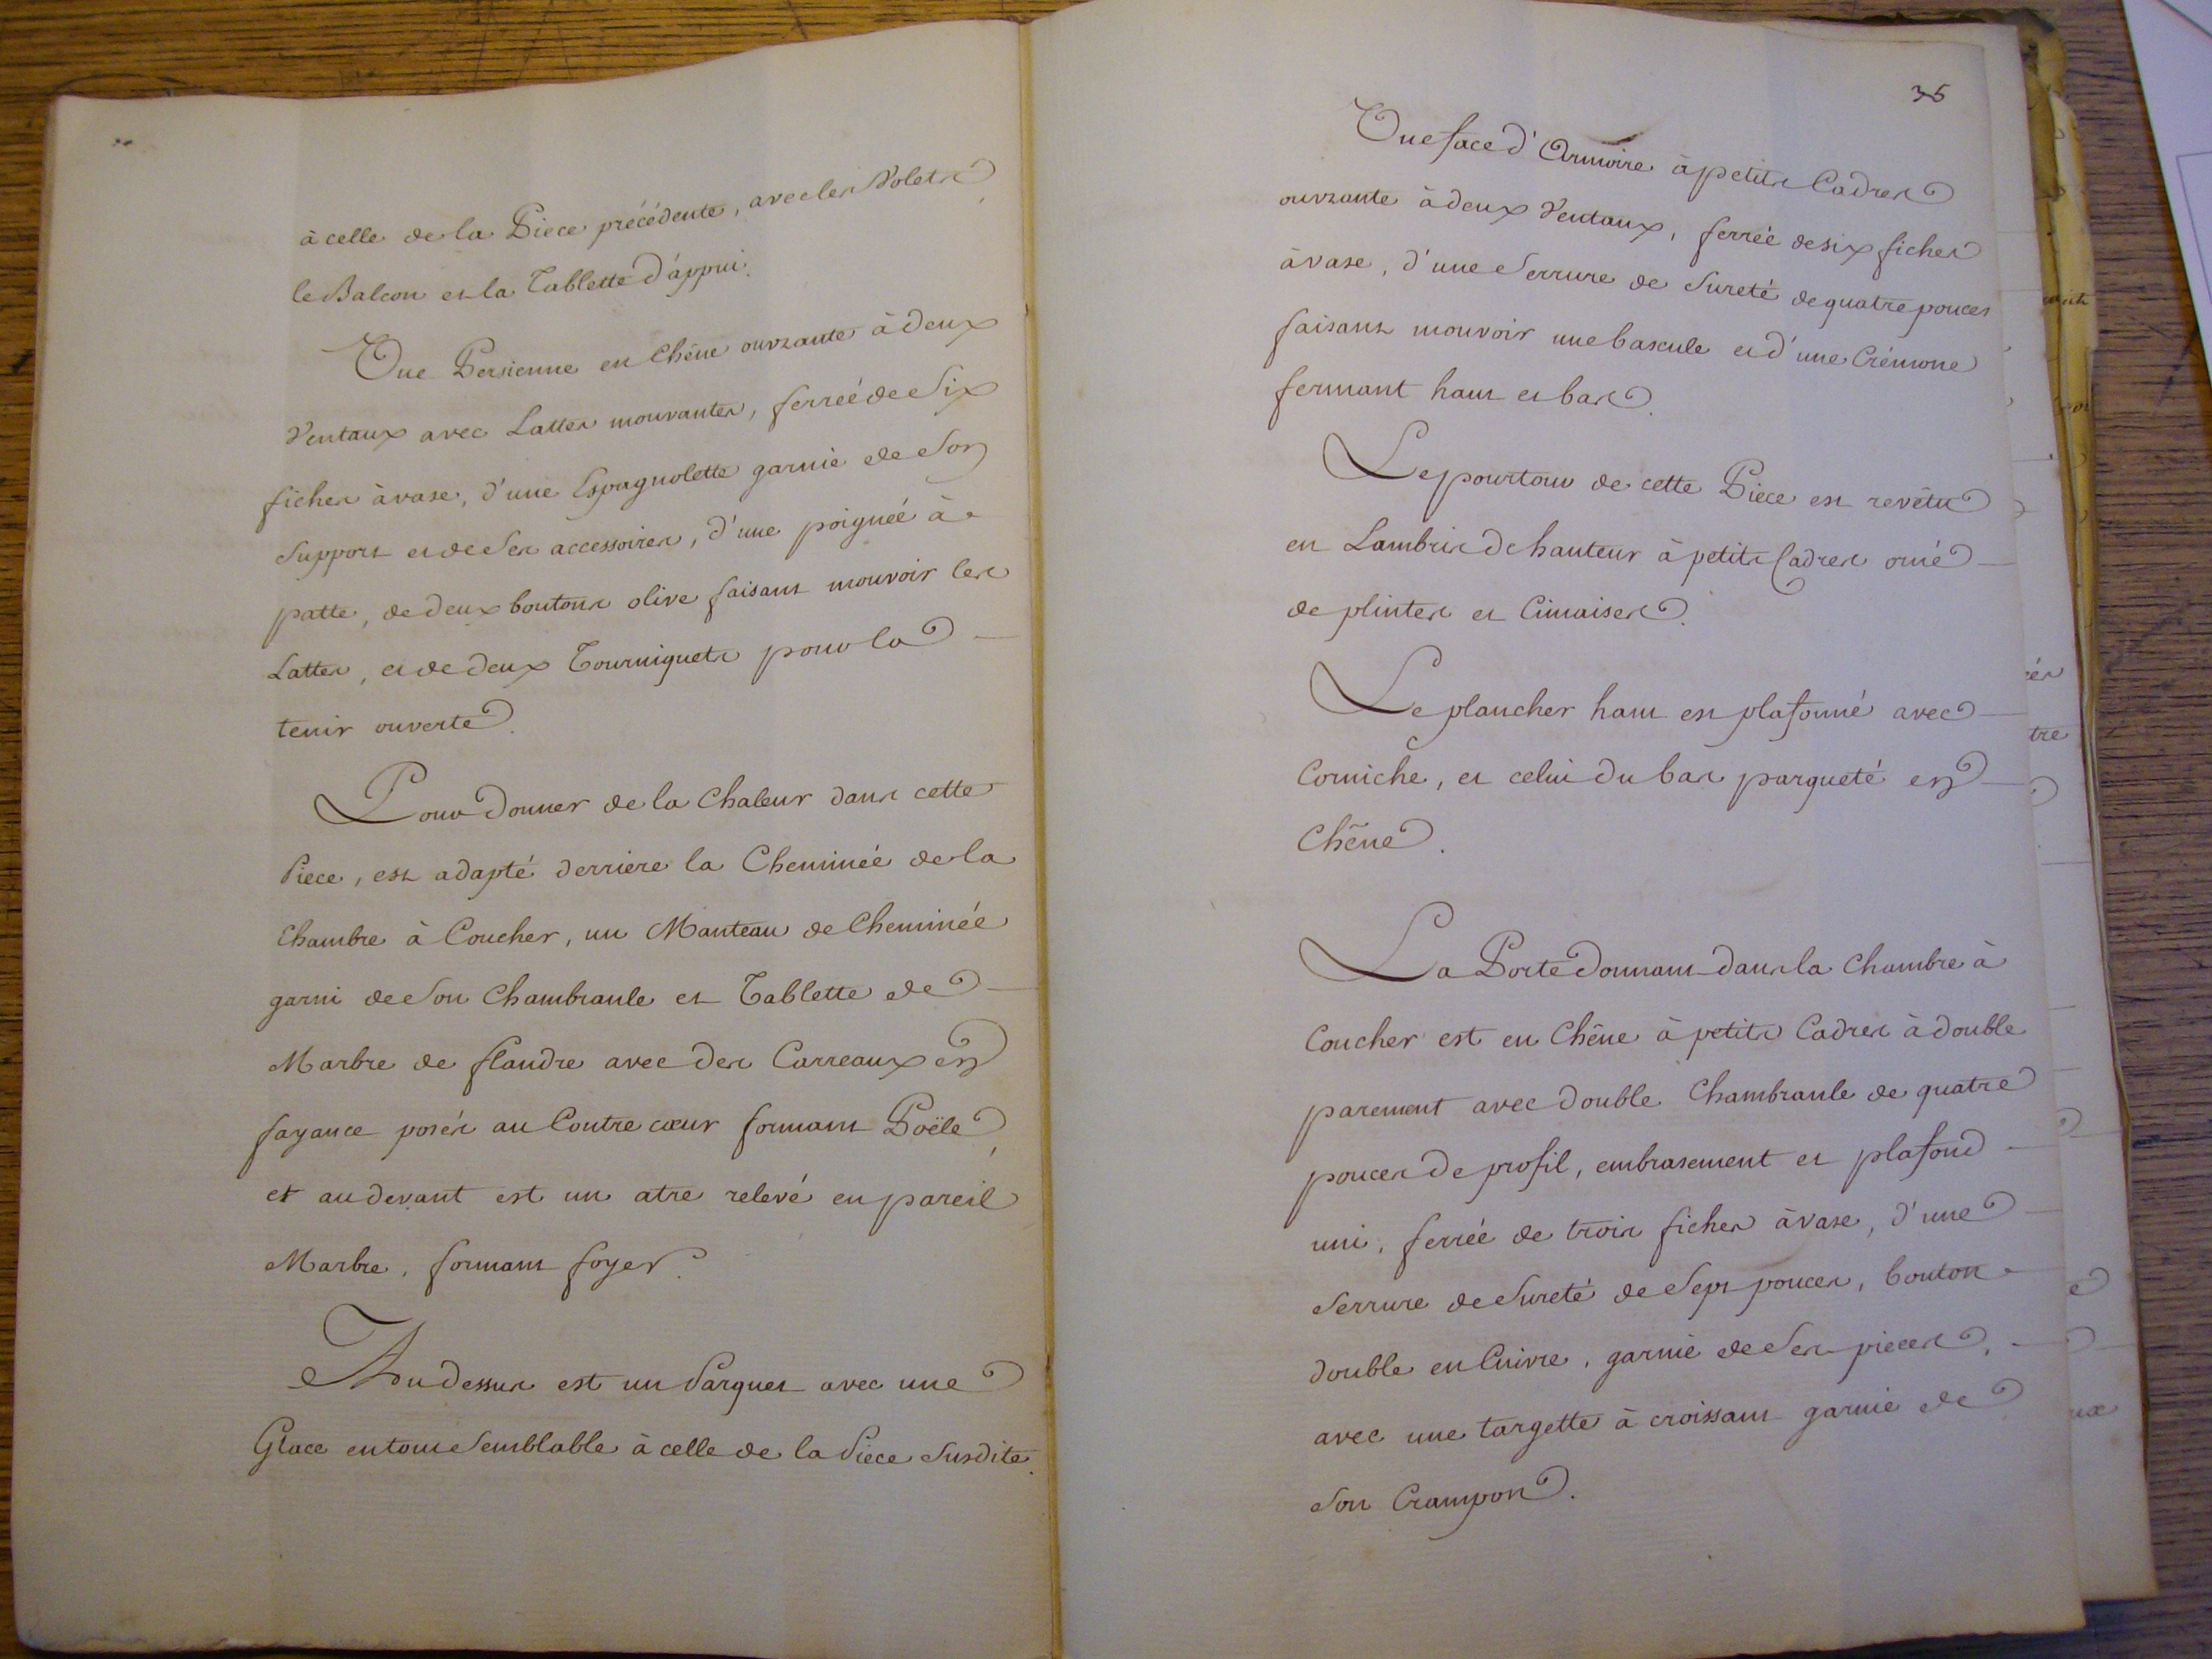 à celle de la Piece précédente, avec les Volets,
le Balcon et la Tablette d'appui.
Une Persienne en Chêne ouvrante à deux
Ventaux avec Lattes mouvantes, ferréé de Six
fiches à vase, d'une Espagnolette garnie de Son
Support et de Ses accessoires, d'une poignéé à
patte, de deux boutons olive faisant mouvoir les
Lattes, et de deux Tourniquets pour la
tenir ouverte.
Pour donner de la Chaleur dans cette
Piece, est adapté derriere la Cheminéé de la
Chambre à Coucher, un Manteau de Cheminéé
garni de Son Chambranle et Tablette de
Marbre de flandre avec des Carreaux en
fayance posés au Contre cœur formant Poële,
et au devant est un atre relevé en pareil
Marbre, formant foyer.
Au dessus est un Parquet avec une
Glace en tout Semblable à celle de la Piece Susdite.
35
Une face d'Armoire à petits Cadres
ouvrante à deux Ventaux, ferréé de six fiches
à vase, d'une Serrure de Sureté de quatre pouces
faisant mouvoir une bascule et d'une Crémone
fermant haut et bas.
Le pourtour de cette Piece est revêtu
en Lambris de hauteur à petits Cadres orné
de plintes et Cimaises.
Le plancher haut est plafonné avec
Corniche, et celui du bas parqueté en
Chêne.
La Porte donnant dans la Chambre à
Coucher est en Chêne à petits Cadres à double
parement avec double Chambranle de quatre
pouces de profil, embrasement et plafond
uni, ferréé de trois fiches à vase, d'une
Serrure de Sureté de Sept pouces, bouton
double en Cuivre, garnie de Ses pieces,
avec une targette à croissant garnie de
Son Crampon.